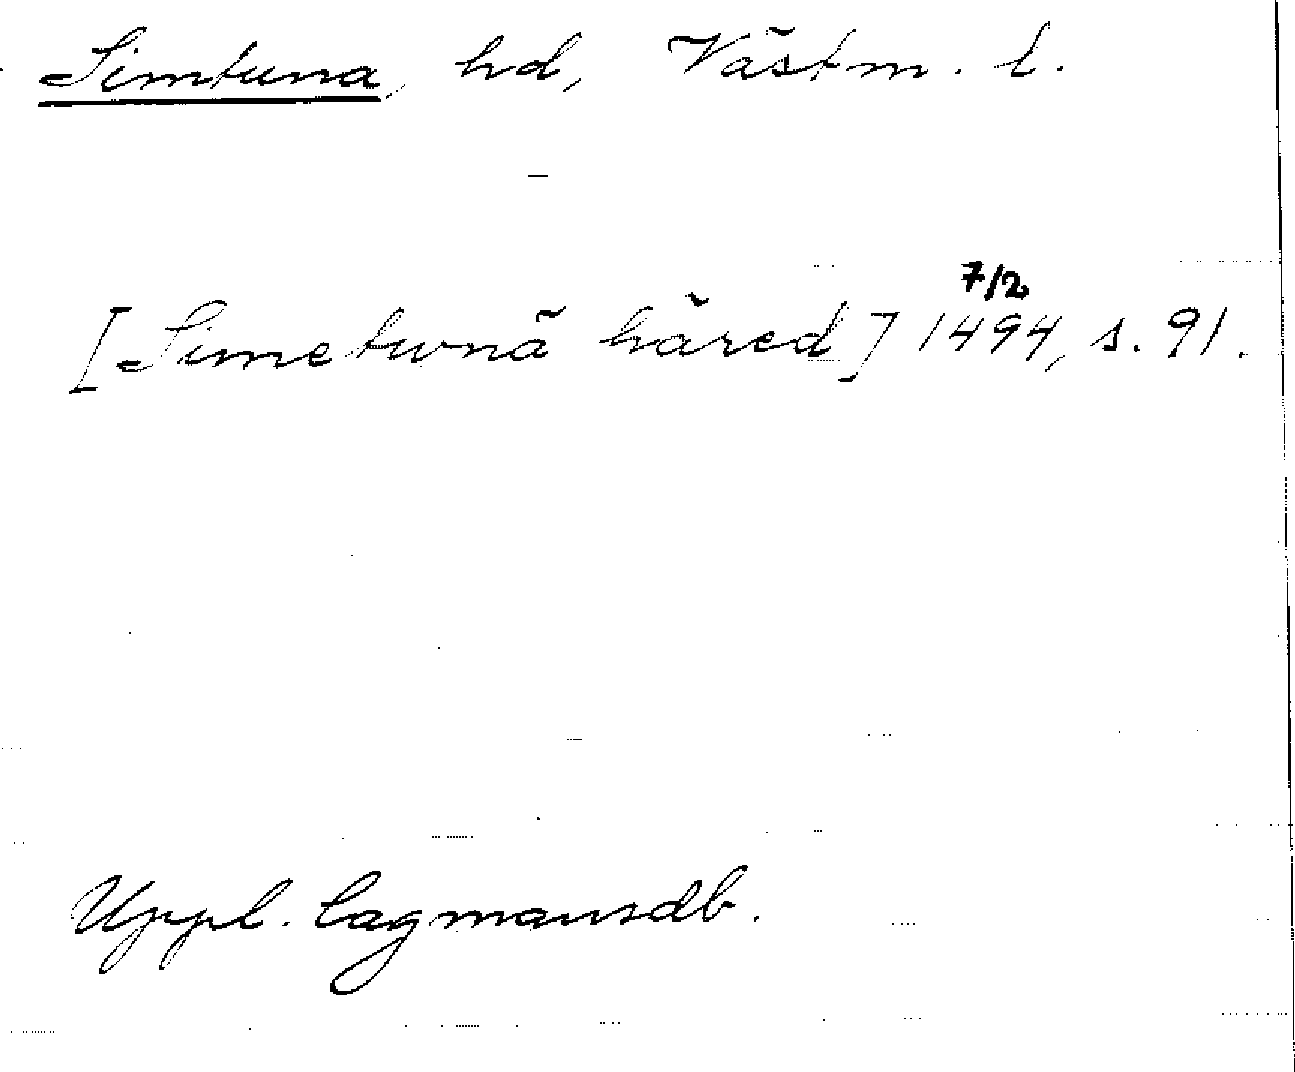 Simtuna, hd, Västm. l.
7/2
[Simetwnä häred] 1494, s. 91.
Uppl. Lagmansdb.